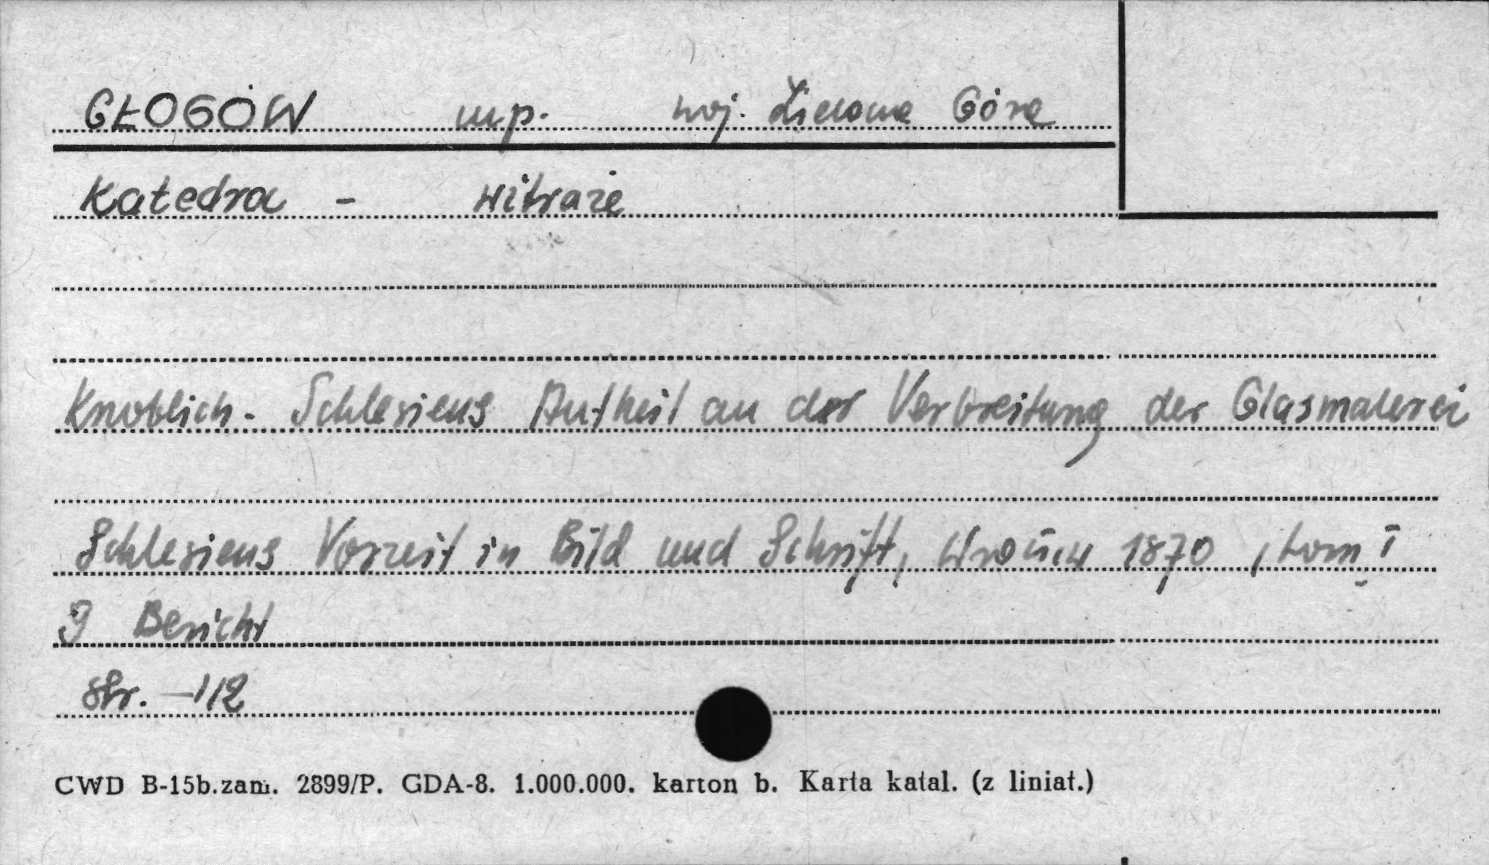 GŁOGÓW m.p. woj. Zielona Góra
Katedra - witraże
Knoblich - Schlesiens Antheil an der Verbreitung der Glasmalerei
Schlesiens Vorzeit in Bild und Schrift, Wrocław 1870, tom I
9 Bericht
str. -112
CWD B-15b.zam. 2899/P. GDA-8. 1.000.000. karton b. Karta katal. (z liniat.)